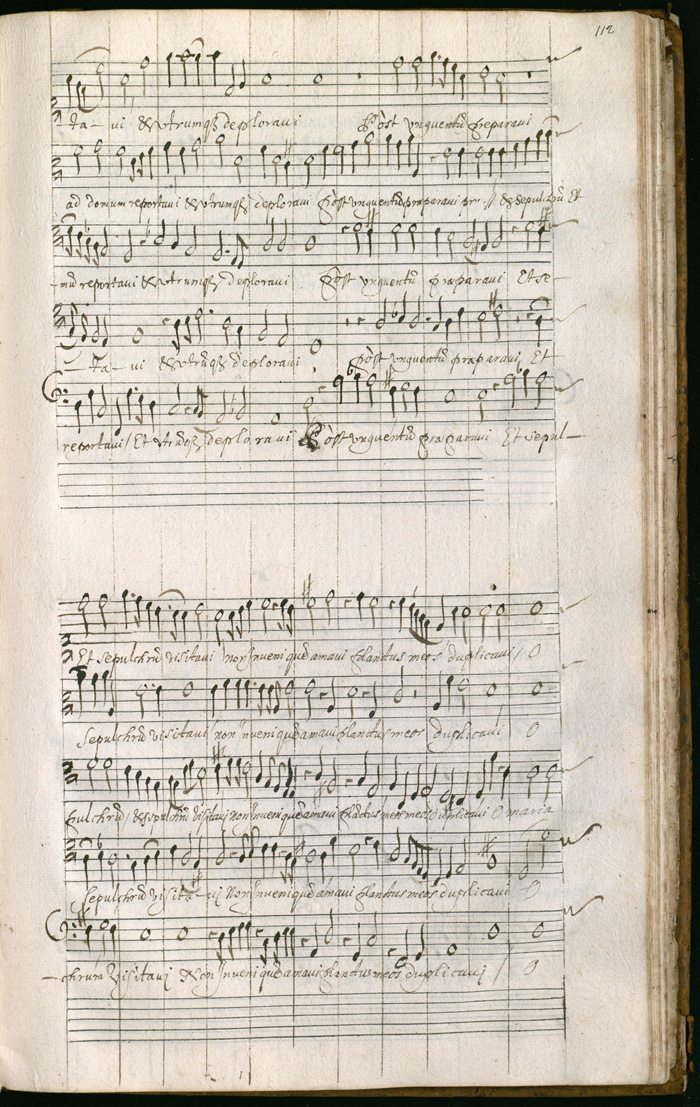 112
ta - vi & utrumq3 deploravi Post unguentū preparavi
ad domum reportavi & utrumq3 deploravi Post unguentū praparavi pr // & sepulchrū Et
- mū reportavi & utrumq3 deploravi Post unguentū praparavi Et se -
- ta - vi & utrūq3 deploravi Post unguentū praparavi Et
reportavi / Et utrūq3 deploravi Post unguentū praparavi Et sepul -
Et sepulchrū visitavi non inveni quē amavi planctus meos duplicavi / O
sepulchrū visitavi non inveni quē amavi planctus meos duplicavi O
pulchrū / & sepulchrū visitavi non inveni quē amavi plāctus meos meos duplicavi O maria
sepulchrū visita - vi Non inveni quē amavi planctus meos duplicavi - O
- chrum visitavi Non inveni quē amavi planctus meos duplicavi / O